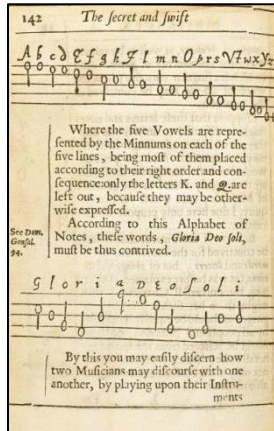 142 The secret and swift
A b c d E f g h I l m n O p r s V t w x y z
Where the five Vowels are repre-
sented by the Minnums on each of the
five lines, being most of them placed
according to their right order and con-
sequence: only the letters K. and Q. are
left out, because they may be other-
wise expressed.
According to this Alphabet of
See Dom.
Notes, these words, Gloria Deo soli,
94.
must be thus contrived.
G l o r i a D e o s o l i
By this you may easily discern how
two Musicians may discourse with one
another, by playing upon their Instru-
ments